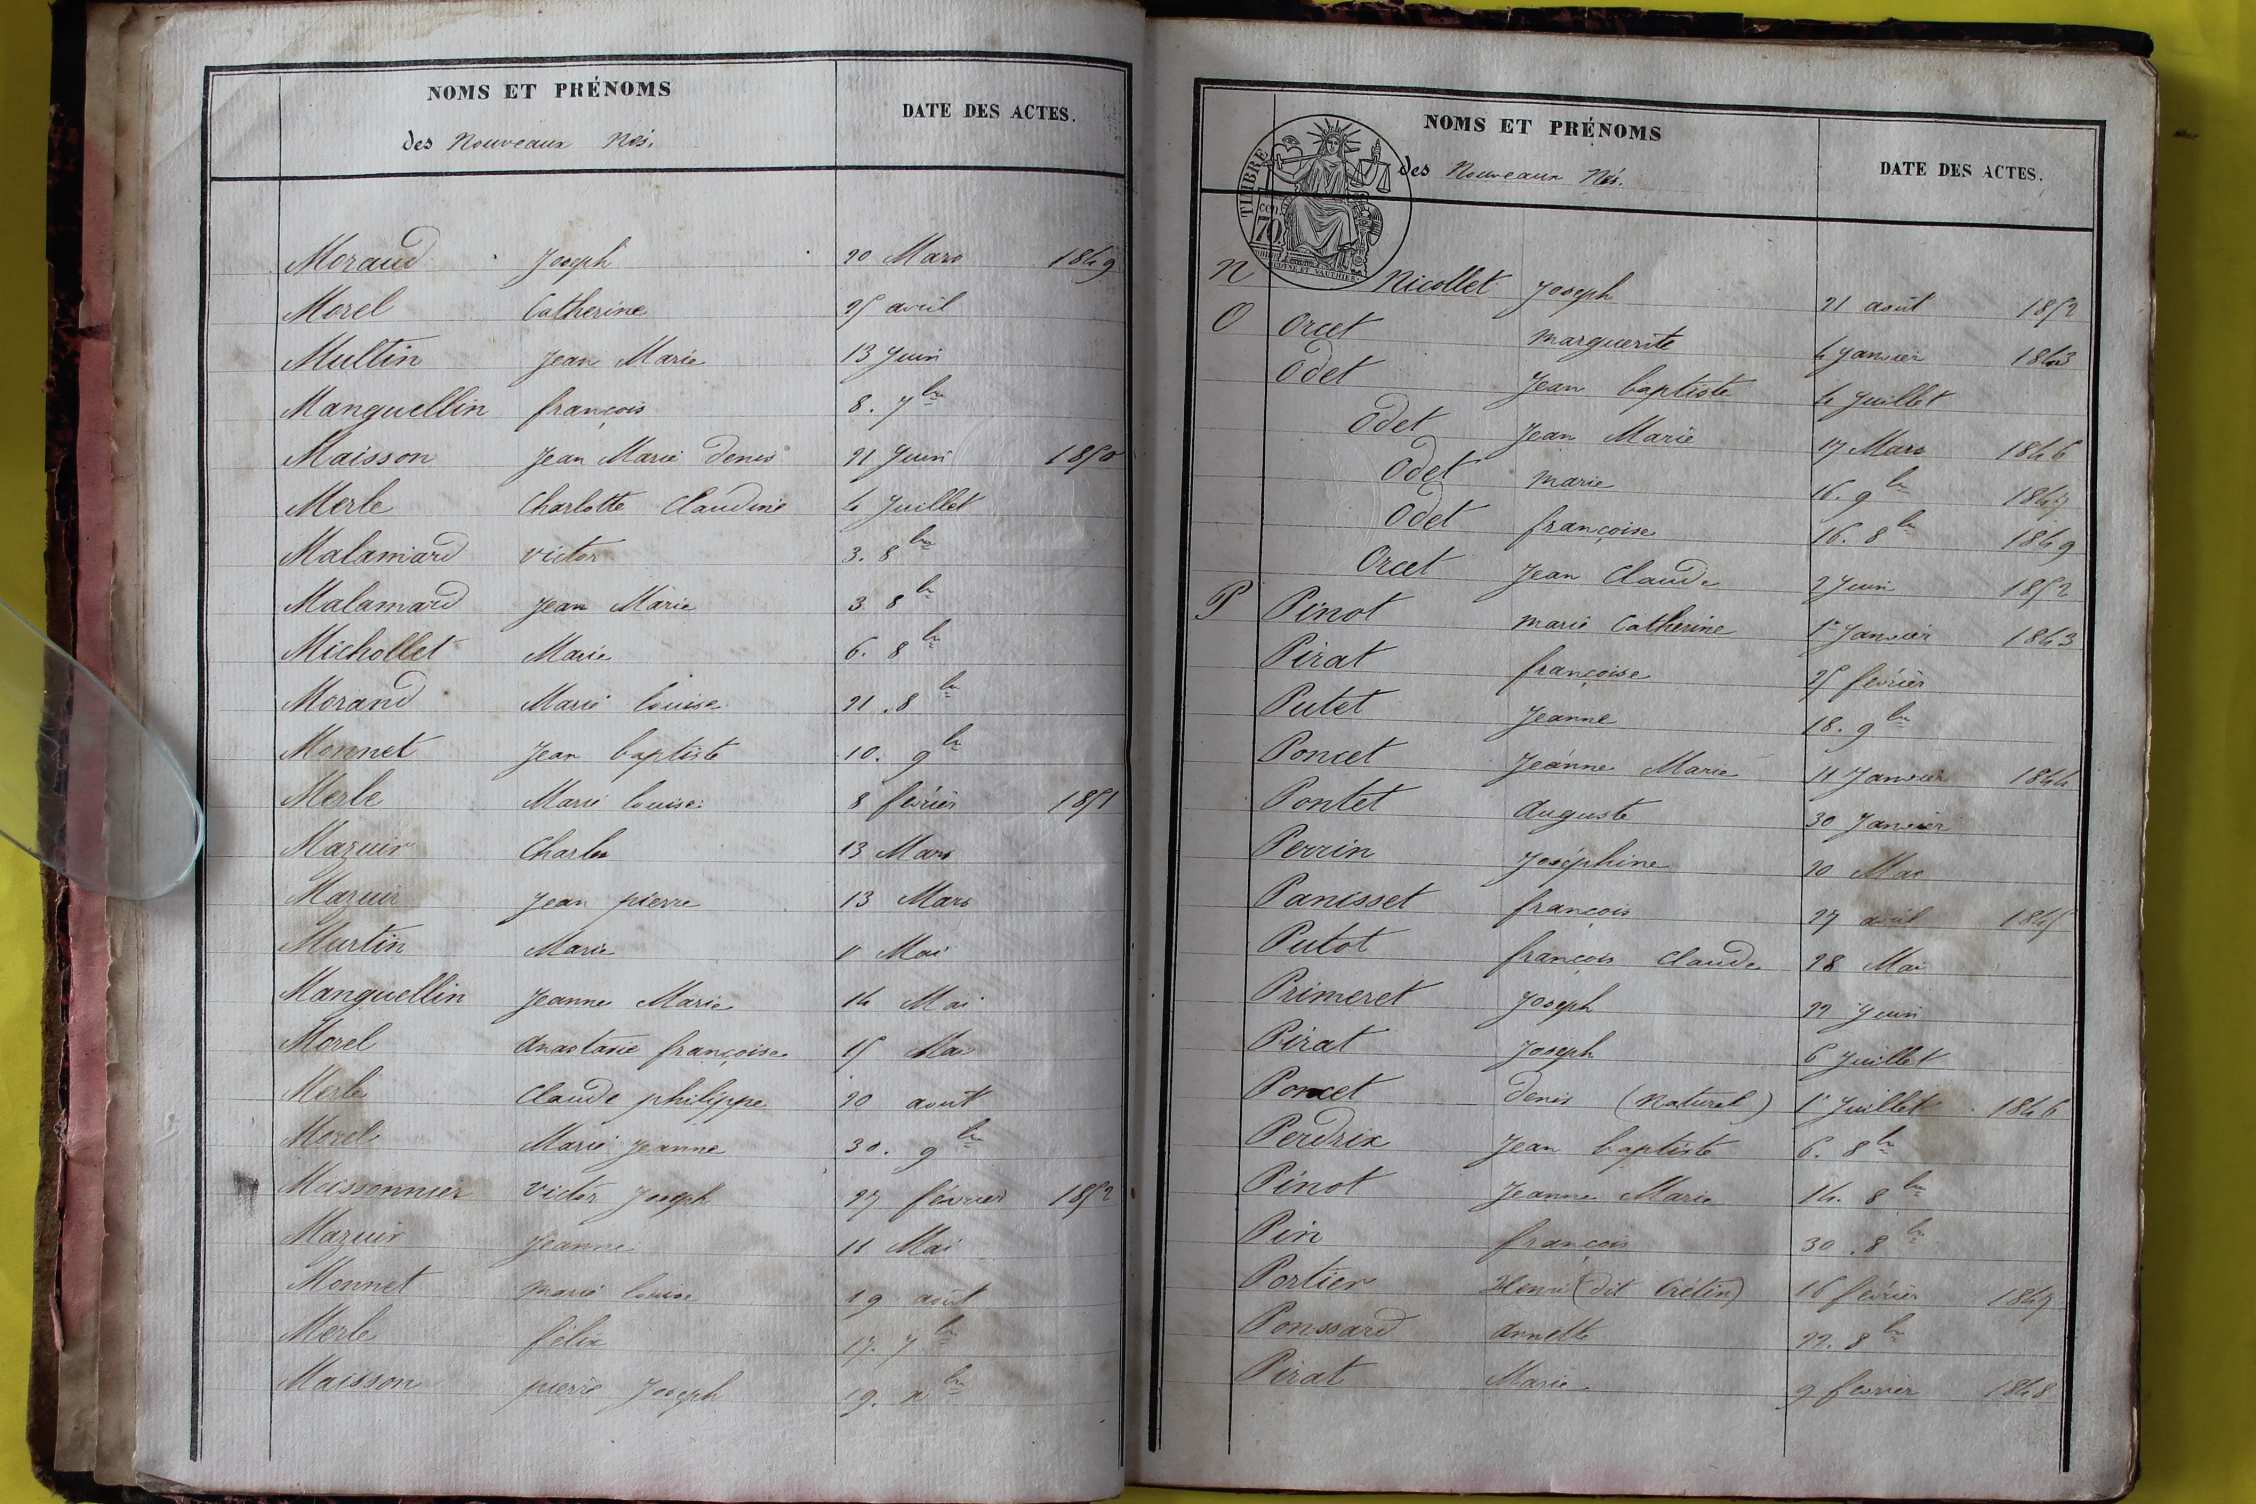 NOMS ET PRÉNOMS
des Nouveaux Nés.
DATE DES ACTES.
Moraud Joseph 20 Mars 1849
Morel Catherine 25 avril
Multin Jean Marie 13 Juin
Manguellin françois 8. 7bre
Maisson Jean Marie Denis 21 Juin 1850
Merle Charlotte Claudine 4 Juillet
Malamard victor 3. 8bre
Malamard Jean Marie 3 8bre
Michollet Marie 6. 8bre
Morand Marie louise 21. 8bre
Monnet Jean baptiste 10. 9bre
Merle Marie louise 8 février 1851
Mazuir Charles 13 Mars
Mazuir Jean pierre 13 Mars
Murtin Marie Mai
Manguellin Jeanne Marie 14 Mai
Morel Anastasie françoise 15 Mai
Merle Claude philippe 20 août
Morel Marie Jeanne 30. 9bre
Maissonnier victor Joseph 27 février 1852
Mazuir Jeanne 11 Mai
Monnet marie louise 19 août
Merle félix 17. 7bre
Maisson pierre Joseph 19. xbre
NOMS ET PRÉNOMS
des Nouveaux Nés.
DATE DES ACTES.
TIMBRE
70
N Nicollet Joseph 21 août 1852
O Orcet marguerite 4 Janvier 1843
Odet Jean baptiste 4 Juillet
Odet Jean Marie 17 Mars 1846
Odet marie 16. 9bre 1847
Odet françoise 16. 8bre 1849
Orcet Jean Claude 2 Juin 1852
P Pinot marie Catherine 1er Janvier 1843
Pirat françoise 25 février
Putet Jeanne 18. 9bre
Poncet Jeanne Marie 11 Janvier 1844
Pontet Auguste 30 Janvier
Perrin Joséphine 20 Mai
Panisset françois 27 avril 1845
Putot françois Claude 28 Mai
Primeret Joseph 22 Juin
Pirat Joseph 6 Juillet
Poncet Denis (Naturel) 1er Juillet 1846
Perdrix Jean baptiste 6. 8bre
Pinot Jeanne Marie 14. 8bre
Pin françois 30. 8bre
Portier Henri (dit Crétin) 16 février 1847
Ponssard Annette 22. 8bre
Pirat Marie 9 février 1848